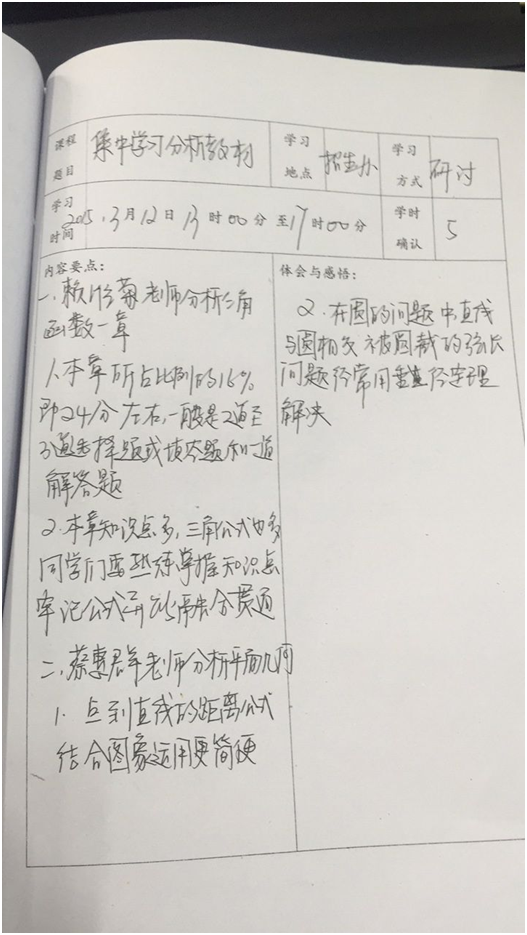 课程题目 集中学习分析教材 学习地点 招生办 学习方式 研讨
学习时间 2015.3月12日13时00分至17时00分 学时确认 5
内容要点:
一.赖 菊老师分析三角
函数一章
1.本章所占比例的16%
即24分左右,一般是2道至
3道选择题或填空题和一道
解答题
2.本章知识点多,三角公式也多
同学们需熟练掌握知识点
牢记公式 融会贯通
二.蔡惠群老师分析平面几何
1.点到直线的距离公式
结合图象运用更简便
体会与感悟:
2.在圆的问题中直线
与圆相交被圆截的弦长
问题经常用垂径定理
解决